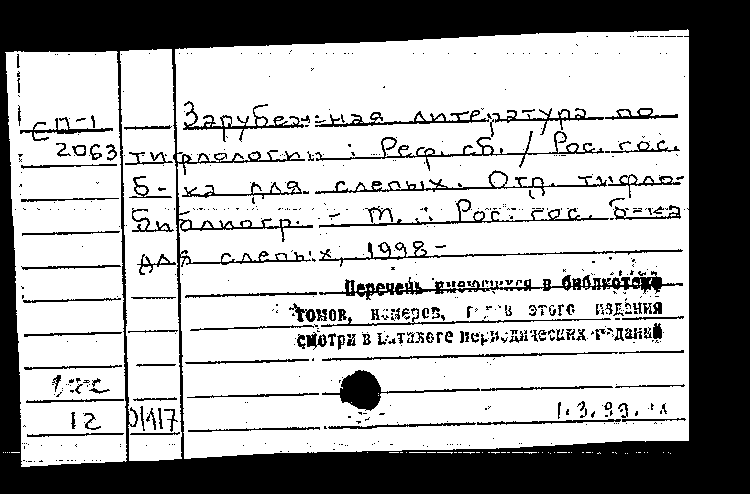 СП-1 Зарубежная литература по
2063 тифлологии : Реф. сб. / Рос. гос.
б-ка для слепых. Отд. тифло-
библиогр. - М. : Рос. гос. б-ка
для слепых, 1998-
Перечень имеющихся в библиотеке
томов, номеров, годов этого издания
смотри в каталоге периодических изданий
12
1.3.99.